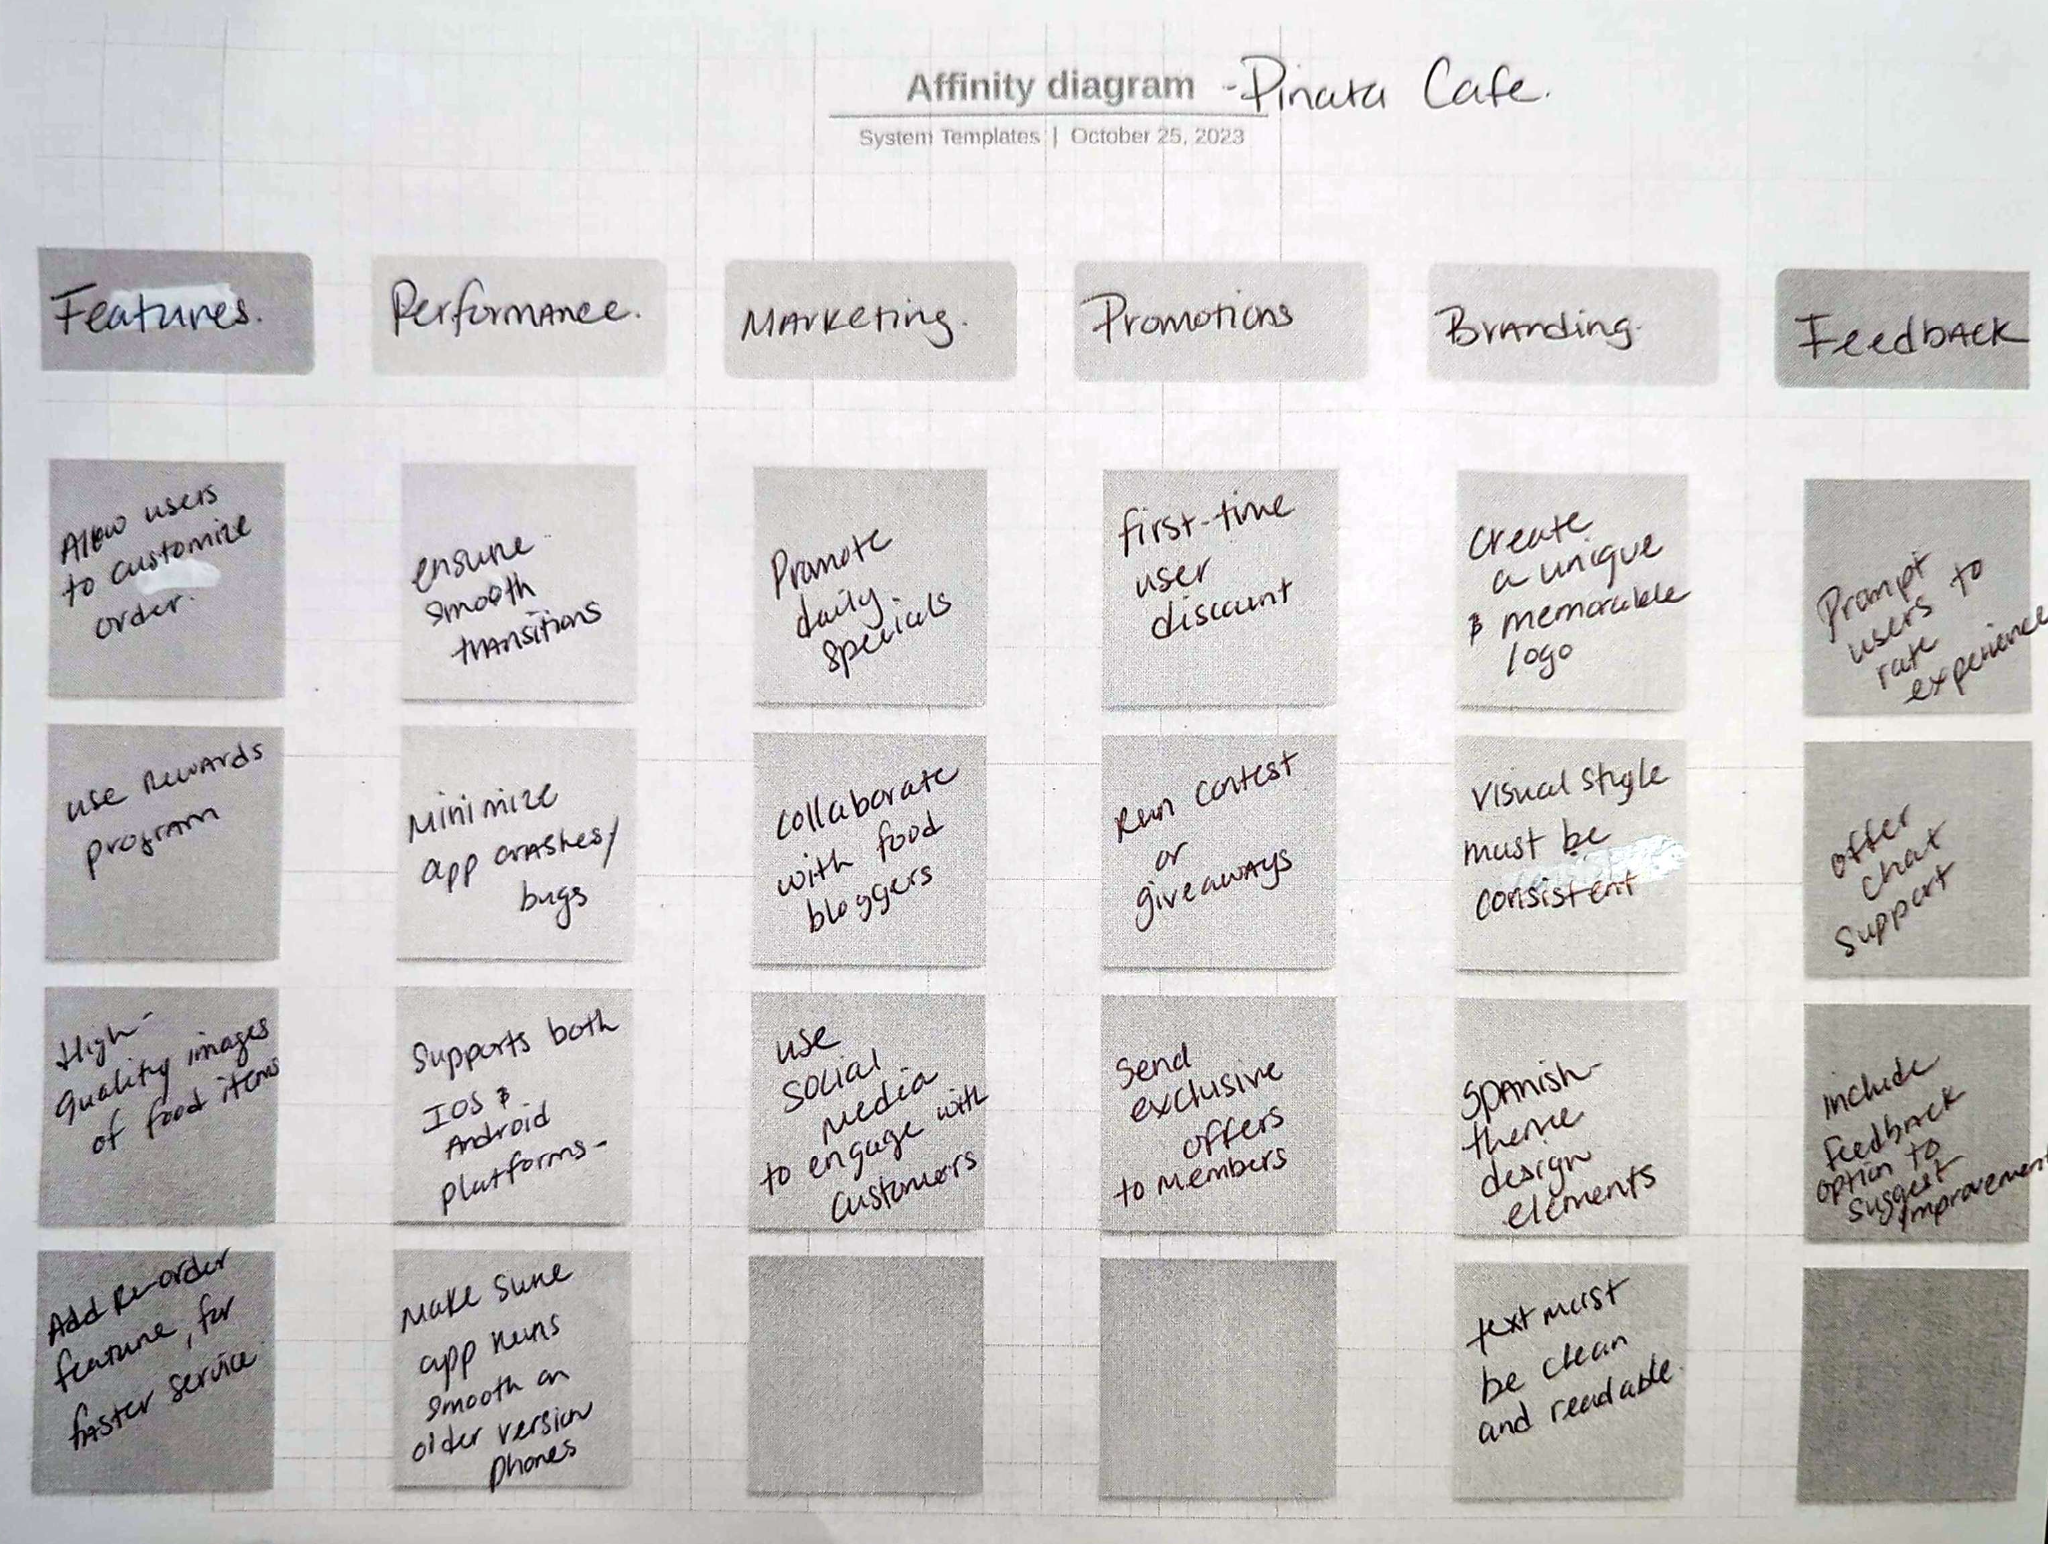 Affinity diagram - Pinata Cafe.
System Templates | October 25, 2023
Features.
Performance.
Marketing.
Promotions
Branding.
Feedback
Allow users
to customize
order.
ensure
smooth
transitions
Promote
daily
specials
first-time
user
discount
Create
a unique
& memorable
logo
Prompt
users to
rate
experience
use Rewards
program
Minimize
app crashes/
bugs
collaborate
with food
bloggers
Run contest
or
giveaways
Visual style
must be
consistent
offer
chat
support
High-
Quality images
of food items
Supports both
IOS &
Android
platforms-
use
social
media
to engage with
customers
Send
exclusive
offers
to members
Spanish-
theme
design
elements
include
feedback
option to
suggest
improvement
Add Re-order
feature, for
faster service.
Make sure
app runs
smooth on
older version
phones
text must
be clean
and readable.